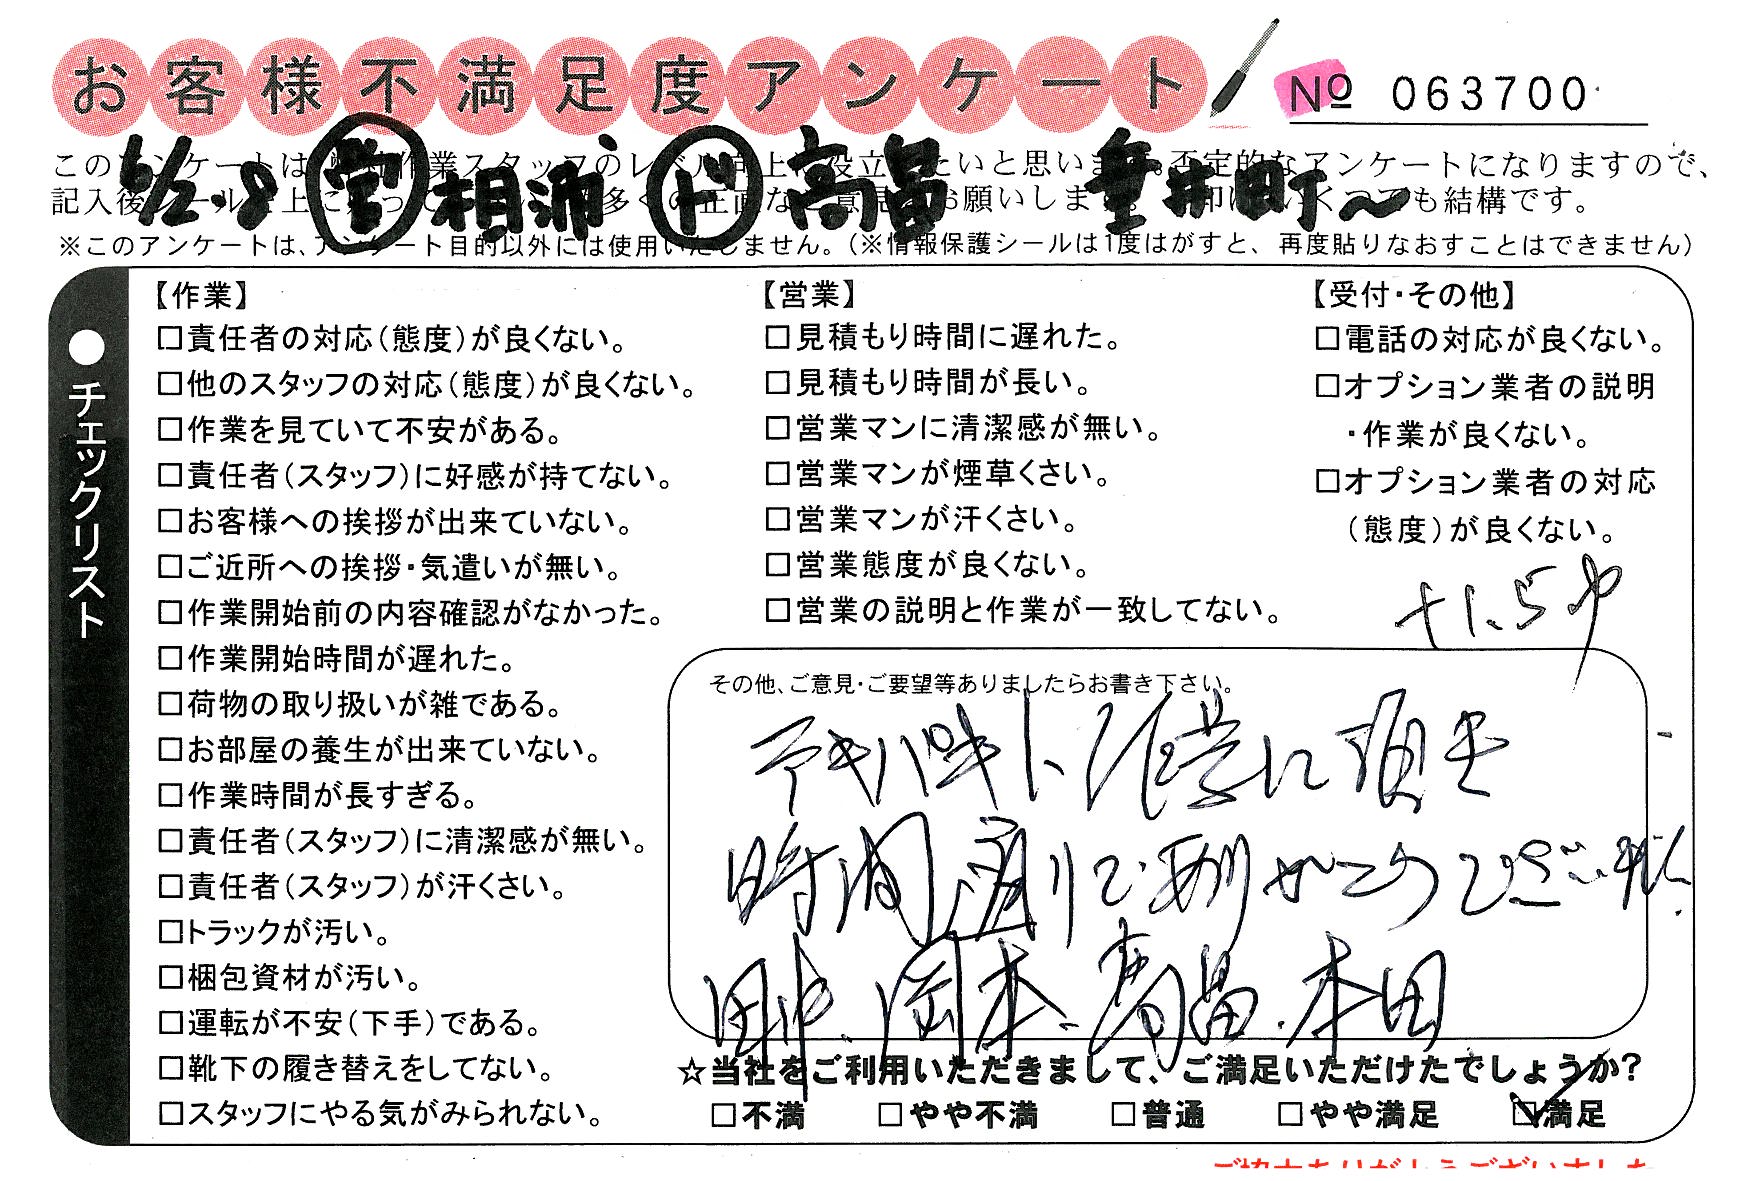 お客様不満足度アンケート
No 063700
6/2.8 営 相浦 ド 高畠 垂井町〜
このアンケートは 作業スタッフのレベル向上に役立 たいと思います。否定的なアンケートになりますので、
記入後シールを上に貼って 多く 正直な 意見 お願いします。 も結構です。
※このアンケートは、アンケート目的以外には使用いたしません。（※情報保護シールは1度はがすと、再度貼りなおすことはできません）
●チェックリスト
【作業】
□責任者の対応（態度）が良くない。
□他のスタッフの対応（態度）が良くない。
□作業を見ていて不安がある。
□責任者（スタッフ）に好感が持てない。
□お客様への挨拶が出来ていない。
□ご近所への挨拶・気遣いが無い。
□作業開始前の内容確認がなかった。
□作業開始時間が遅れた。
□荷物の取り扱いが雑である。
□お部屋の養生が出来ていない。
□作業時間が長すぎる。
□責任者（スタッフ）に清潔感が無い。
□責任者（スタッフ）が汗くさい。
□トラックが汚い。
□梱包資材が汚い。
□運転が不安（下手）である。
□靴下の履き替えをしてない。
□スタッフにやる気がみられない。
【営業】
□見積もり時間に遅れた。
□見積もり時間が長い。
□営業マンに清潔感が無い。
□営業マンが煙草くさい。
□営業マンが汗くさい。
□営業態度が良くない。
□営業の説明と作業が一致してない。
【受付・その他】
□電話の対応が良くない。
□オプション業者の説明
・作業が良くない。
□オプション業者の対応
（態度）が良くない。
その他、ご意見・ご要望等ありましたらお書き下さい。
テキパキと作業に頂き
時間通りで
田中、岡本、高畠、本田
☆当社をご利用いただきまして、ご満足いただけたでしょうか?
□不満 □やや不満 □普通 □やや満足 ☑満足
ご協力ありがとうございました